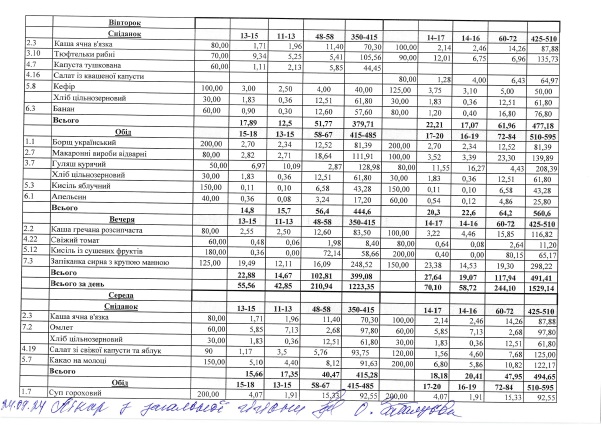 Вівторок
Сніданок 13-15 11-13 48-58 350-415 14-17 14-16 60-72 425-510
2.3 Каша ячна в'язка 80,00 1,71 1,96 11,40 70,30 100,00 2,14 2,46 14,26 87,88
3.10 Тюфтельки рибні 70,00 9,34 5,25 5,41 105,56 90,00 12,01 6,75 6,96 135,73
4.7 Капуста тушкована 60,00 1,11 2,13 5,85 44,45
4.16 Салат із квашеної капусти 80,00 1,28 4,00 6,43 64,97
5.8 Кефір 100,00 3,00 2,50 4,00 40,00 125,00 3,75 3,10 5,00 50,00
Хліб цільнозерновий 30,00 1,83 0,36 12,51 61,80 30,00 1,83 0,36 12,51 61,80
6.3 Банан 60,00 0,90 0,30 12,60 57,60 80,00 1,20 0,40 16,80 76,80
Всього 17,89 12,5 51,77 379,71 22,21 17,07 61,96 477,18
Обід 15-18 13-15 58-67 415-485 17-20 16-19 72-84 510-595
1.1 Борщ український 200,00 2,70 2,34 12,52 81,39 200,00 2,70 2,34 12,52 81,39
2.7 Макаронні вироби відварні 80,00 2,82 2,71 18,64 111,91 100,00 3,52 3,39 23,30 139,89
3.7 Гуляш курячий 50,00 6,97 10,09 2,87 128,98 80,00 11,55 16,27 4,43 208,39
Хліб цільнозерновий 30,00 1,83 0,36 12,51 61,80 30,00 1,83 0,36 12,51 61,80
5.3 Кисіль яблучний 150,00 0,11 0,10 6,58 43,28 150,00 0,11 0,10 6,58 43,28
6.1 Апельсин 40,00 0,36 0,08 3,24 17,20 60,00 0,54 0,12 4,86 25,80
Всього 14,8 15,7 56,4 444,6 20,3 22,6 64,2 560,6
Вечеря 13-15 11-13 48-58 350-415 14-17 14-16 60-72 425-510
2.2 Каша гречана розсипчаста 80,00 2,55 2,50 12,60 83,50 100,00 3,22 4,46 15,85 116,82
4.22 Свіжий томат 60,00 0,48 0,06 1,98 8,40 80,00 0,64 0,08 2,64 11,20
5.12 Кисіль із сушених фруктів 180,00 0,36 0,00 72,14 58,66 200,00 0,40 0,00 80,15 65,17
7.3 Запіканка сирна з крупою манною 125,00 19,49 12,11 16,09 248,52 150,00 23,38 14,53 19,30 298,22
Всього 22,88 14,67 102,81 399,08 27,64 19,07 117,94 491,41
Всього за день 55,56 42,85 210,94 1223,35 70,10 58,72 244,10 1529,14
Середа
Сніданок 13-15 11-13 48-58 350-415 14-17 14-16 60-72 425-510
2.3 Каша ячна в'язка 80,00 1,71 1,96 11,40 70,30 100,00 2,14 2,46 14,26 87,88
7.2 Омлет 60,00 5,85 7,13 2,68 97,80 60,00 5,85 7,13 2,68 97,80
Хліб цільнозерновий 30,00 1,83 0,36 12,51 61,80 30,00 1,83 0,36 12,51 61,80
4.19 Салат зі свіжої капусти та яблук 90 1,17 3,5 5,76 93,75 120,00 1,56 4,60 7,68 125,00
5.7 Какао на молоці 150,00 5,10 4,40 8,12 91,63 200,00 6,80 5,86 10,82 122,17
Всього 15,66 17,35 40,47 415,28 18,18 20,41 47,95 494,65
Обід 15-18 13-15 58-67 415-485 17-20 16-19 72-84 510-595
1.7 Суп гороховий 200,00 4,07 1,91 15,33 92,55 200,00 4,07 1,91 15,33 92,55
24.09.24 Лікар з загальної гігієни О.